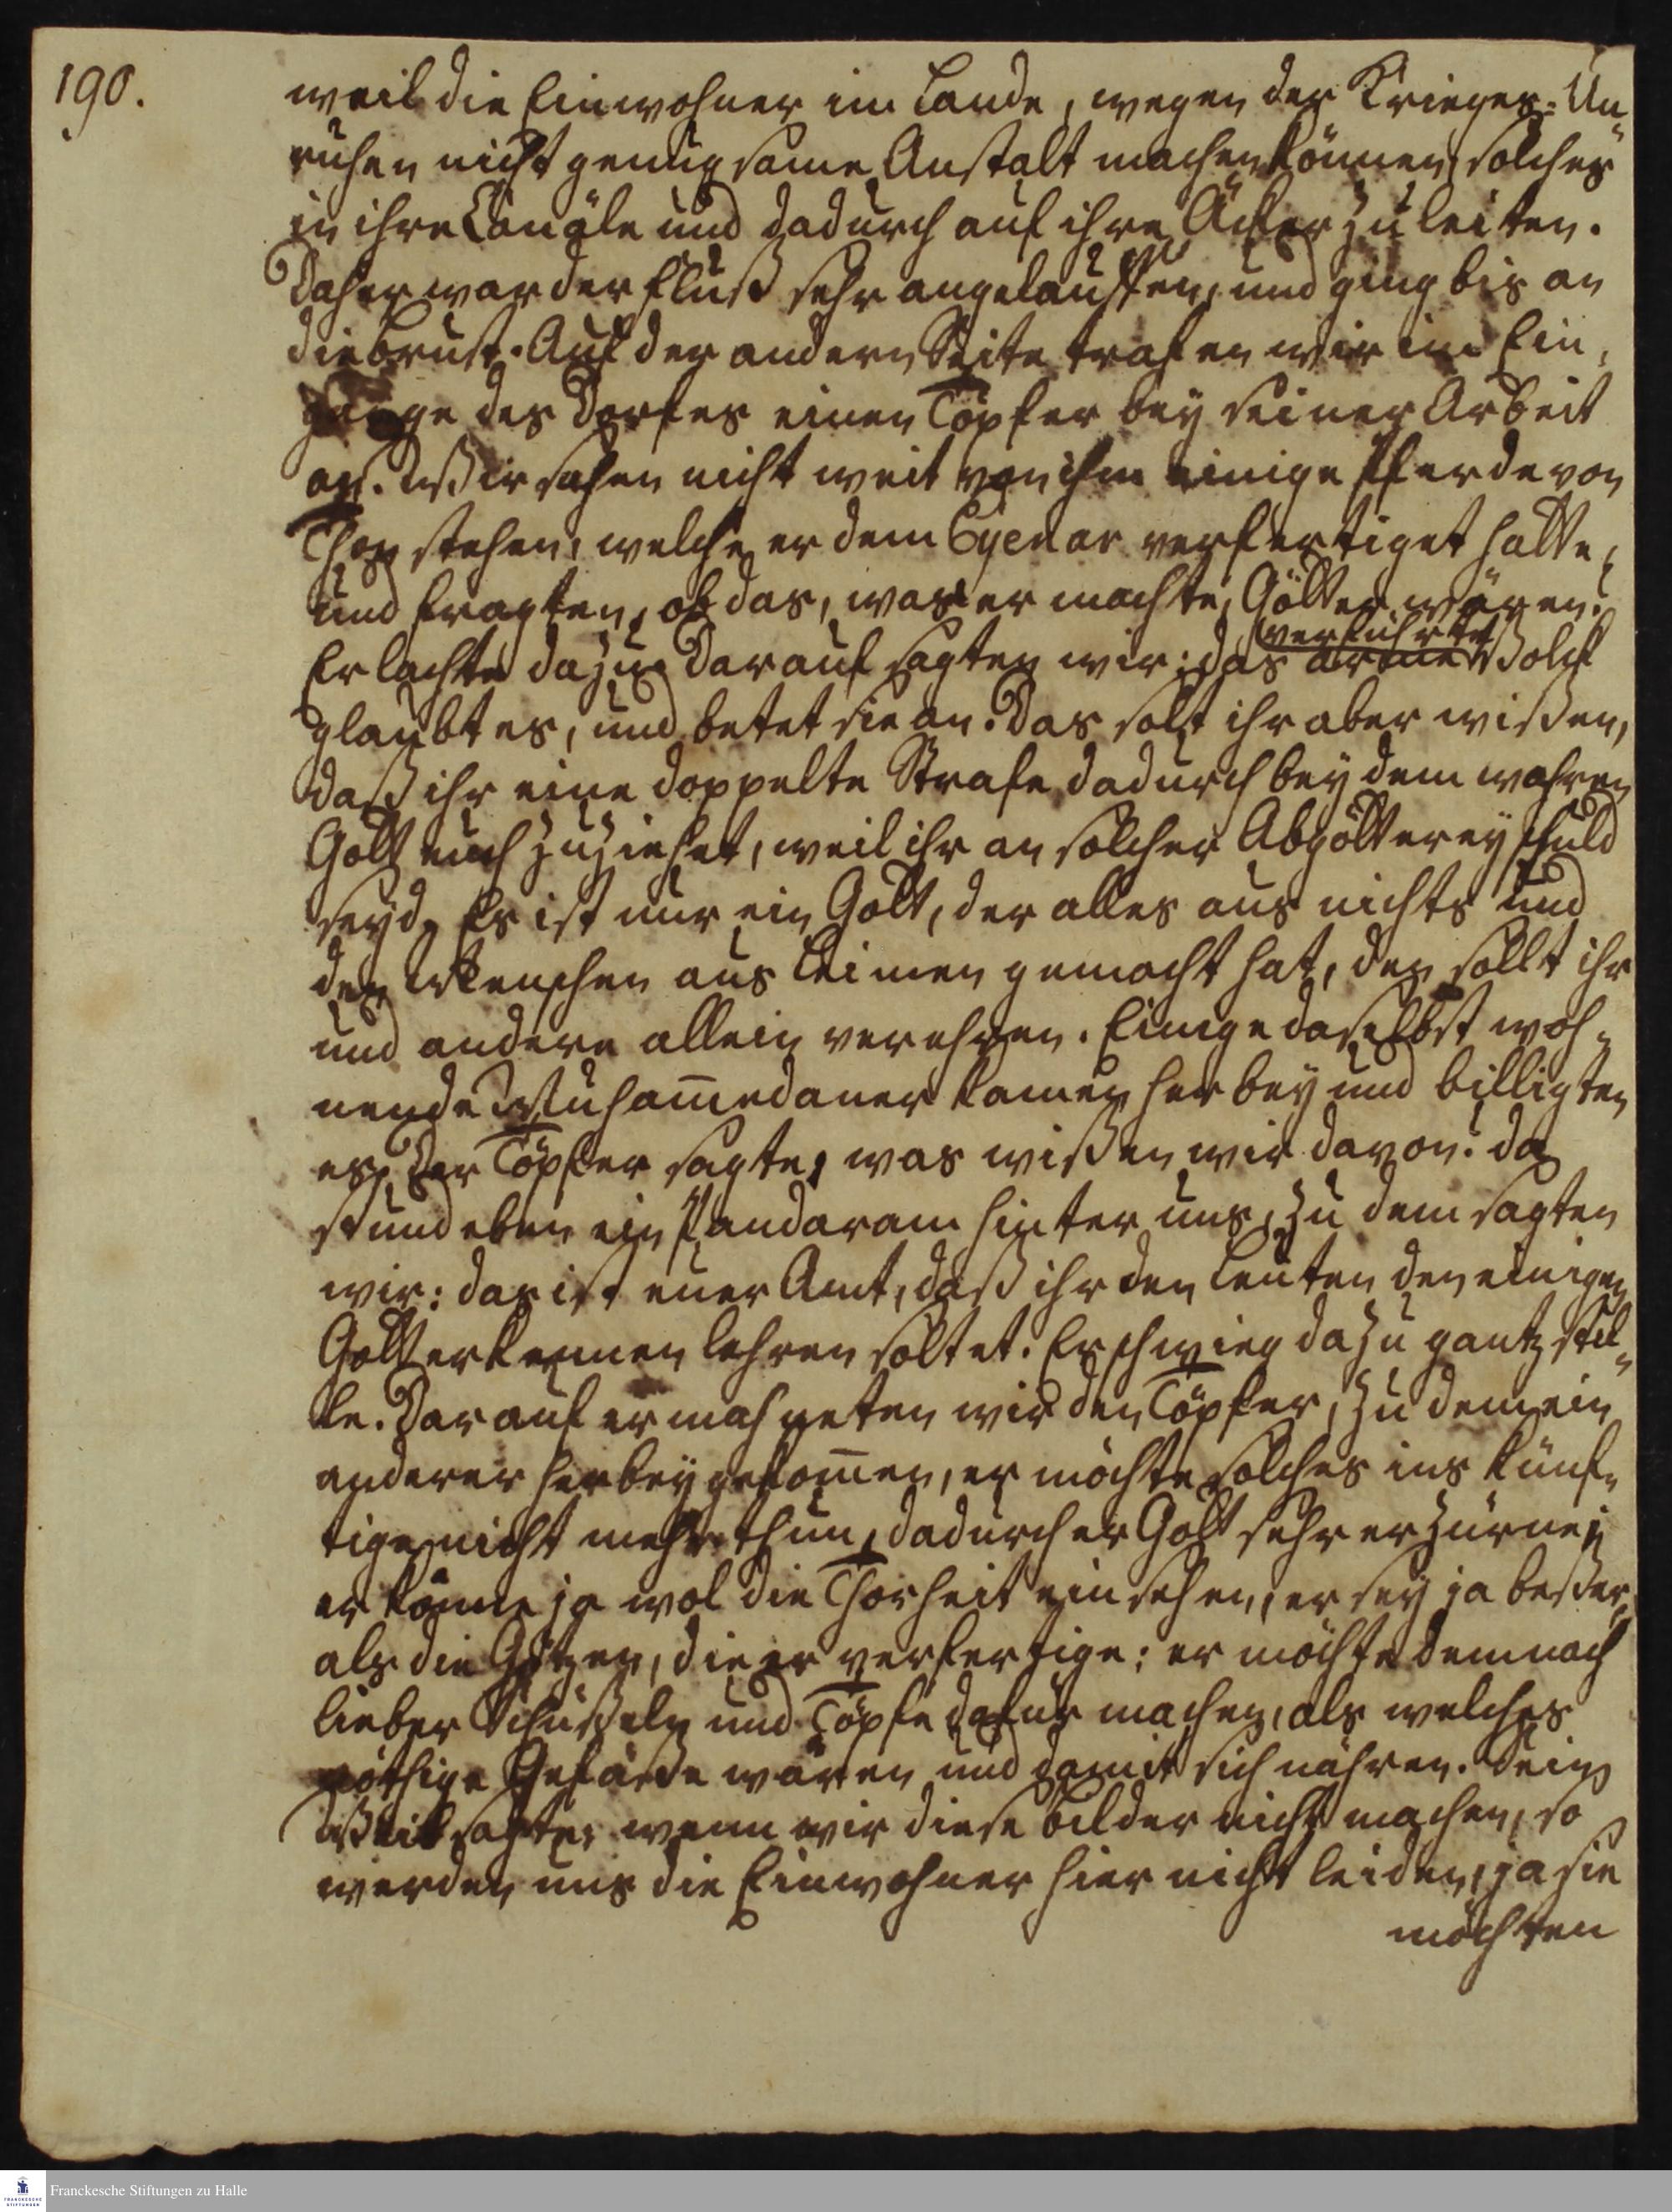 190.
weil die Einwohner im Lande, wegen der Krieges-Un„
ruhen nicht genugsame Anstalt machen können solches
in ihre Canäle und dadurch auf ihre Äcker zu leiten.
Daher war der Fluß sehr angelauffen, und ging bis an
die Brust. Auf der andern Seite trafen wir im Ein„
gange des Dorfes einen Töpfer bey seiner Arbeit
an. Wir sahen nicht weit von ihm einige Pferde von
Thon stehen, welche er dem Eyenar verfertiget hatte,
und fragten, ob das, was er machte, Götter wären?
verführte
Er lachte dazu. Darauf sagten wir: das arme Volck
glaubt es, und betet sie an. Das solt ihr aber wißen,
daß ihr eine doppelte Strafe dadurch bey dem wahren
Gott euch zuziehet, weil ihr an solcher Abgötterey schuld
seyd. Es ist nur ein Gott, der alles aus nichts und
den Menschen aus Leimen gemacht hat, den sollt ihr
und andere allein verehren. Einige daselbst woh„
nende Muham̄edaner kamen herbey und billigten
es. Der Töpfer sagte, was wißen wir davon? da
stund eben ein Pandaram hinter uns, zu dem sagten
wir: das ist euer Amt, daß ihr den Leuten den einigen
Gott erkennen lehren soltet. Er schwieg dazu gantz stil„
le. Darauf ermahneten wir den Töpfer, zu dem ein
anderer herbey gekom̄en, er möchte solches ins künf„
tige nicht mehr thun, dadurch er Gott sehr erzürne;
er könne ja wol die Thorheit einsehen, er sey ja beßer,
als die Götzen, die er verfertige; er möchte demnach
lieber Schüßeln und Töpfe dafür machen, als welches
nöthige Gefäße wären und damit sich nähren. Sein
Weib sagte, wenn wir diese Bilder nicht machen, so
werden uns die Einwohner hier nicht leiden, ja sie
möchten
Franckesche Stiftungen zu Halle
FRANCKESCHE STIFTUNGEN